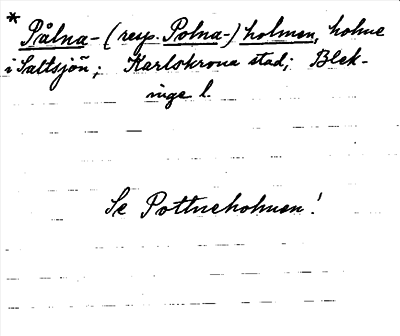 * Pålna- (resp. Polna-) holmen, holme
i Saltsjön; Karlskrona stad; Blek-
inge l.
Se Pottneholmen!